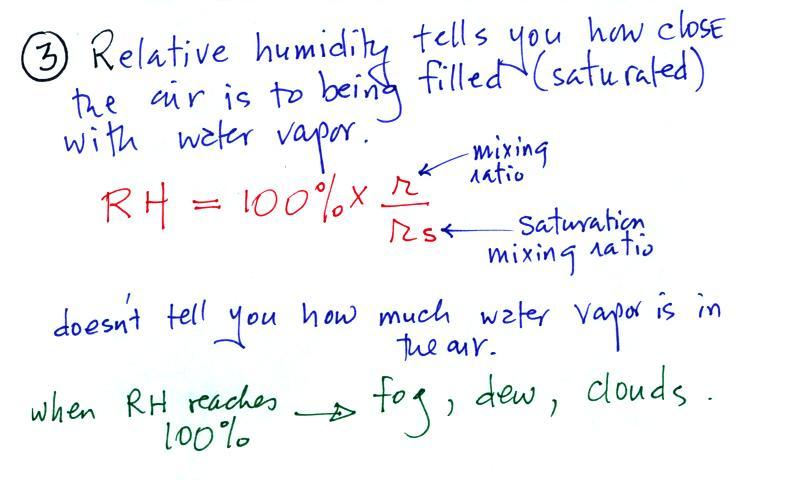 ③ Relative humidity tells you how close
the air is to being filled (saturated)
with water vapor.
RH = 100% x r/rs
mixing
ratio
saturation
mixing ratio
doesn't tell you how much water vapor is in
the air.
when RH reaches → fog, dew, clouds.
100%